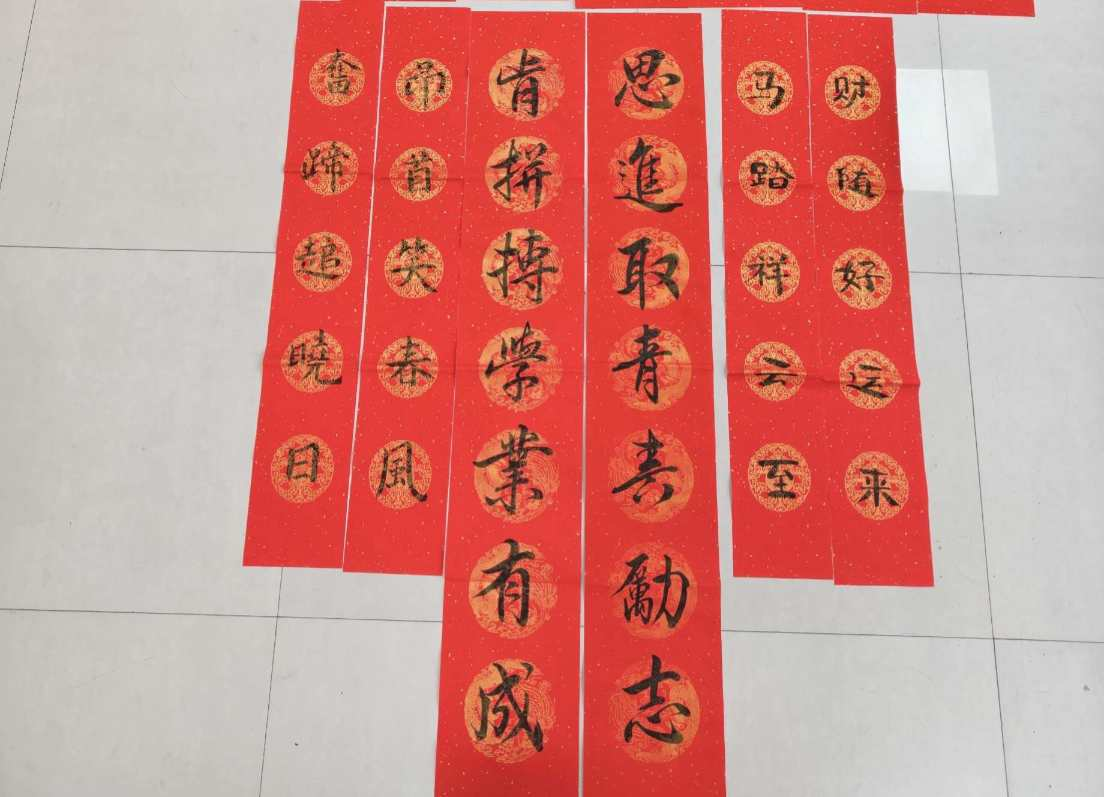 财随好运来
马踏祥云至
思進取青春勵志
肯拼搏學業有成
昂首笑春風
奮蹄追曉日